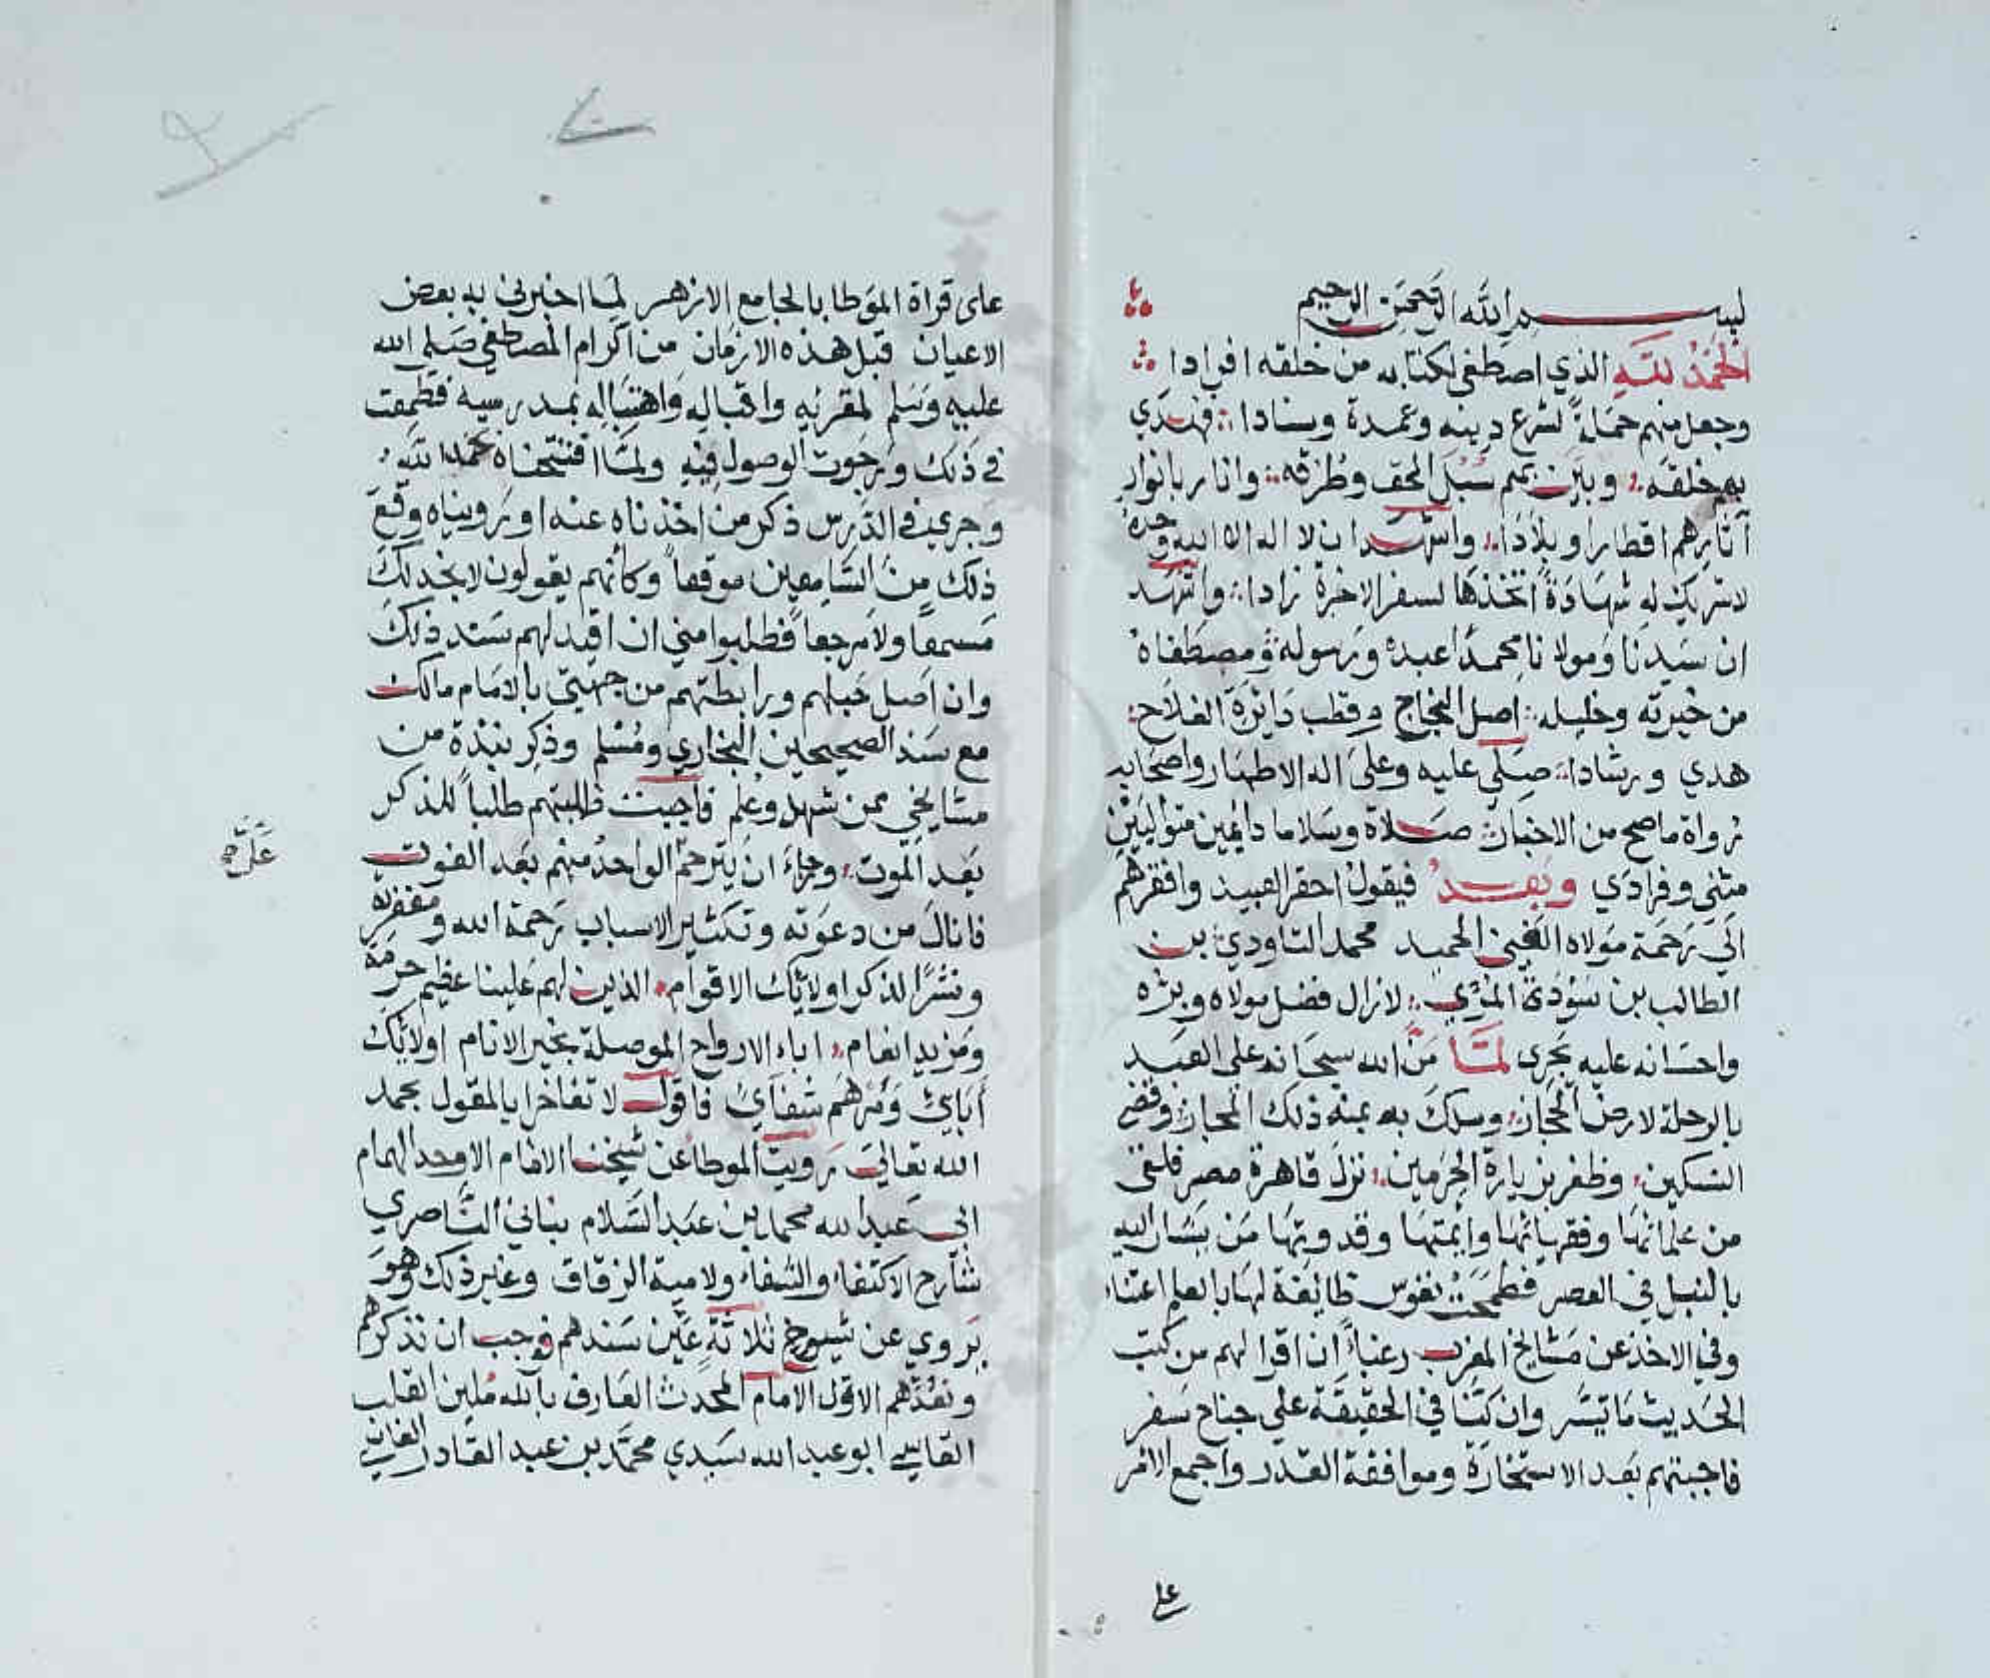 بسم الله الرحمن الرحيم
الحمد لله الذي اصطفى لكتابه من خلقه افرادا
وجعل منهم حملة لشرع دينه وعمدة وسنادا فهدي
بهم خلقه وبين بهم سبل الحق وطرقه وانار بانوار
آثارهم اقطارا وبلادا واشهد ان لا اله الا الله وحده
لا شريك له شهادة اتخذها لسفر الاخرة زادا واشهد
ان سيدنا ومولانا محمدا عبده ورسوله ومصطفاه
من خيرته وخليله اصل النجاح وقطب دائرة الفلاح
هدي ورشادا صلي عليه وعلى اله الاطهار واصحابه
رواة ما صح من الاخبار صلاة وسلاما دايمين متواليين
مثني وفرادي وبعد فيقول احقر العبيد وافقرهم
الي رحمة مولاه الغني الحميد محمد التاودي بن
الطالب بن سودة المري لازال فضل مولاه وبره
واحسانه عليه يجرى لما من الله سبحانه على العبد
بالرحلة لارض الحجاز وسلك به بمنه ذلك المجاز وقضى
النسكين وظفر بزيارة الحرمين نزل قاهرة مصر فلقى
من علمائها وفقهائها وايمتها وقدوتها من يشار اليه
بالنبل في العصر فطمحت نفوس طائفة لها بالعلم اعتناء
وفي الاخذ عن مشايخ المغرب رغباء ان اقرا لهم من كتب
الحديث ما تيسر وان كنا في الحقيقة علي جناح سفر
فاجبتهم بعد الاستخارة وموافقة القدر واجمع الامر
على
على قراة الموطا بالجامع الازهر لما اخبرني به بعض
الاعيان قبل هذه الازمان من اكرام المصطفي صلى الله
عليه وسلم لمقرئه واقباله واهتباله بمدرسيه فطمعت
في ذلك ورجوت الوصول فيه ولما افتتحناه بحمد الله
وجرى في الدرس ذكر من اخذناه عنه او رويناه وقع
ذلك من السامعين موقعا وكانهم يقولون لا نجد لك
مسمعا ولا مرجعا فطلبوا مني ان اقيد لهم سند ذلك
وان اصل حبلهم ورابطتهم من جهتي بالامام مالك
مع سند الصحيحين البخاري ومسلم وذكر نبذة من
مشايخي ممن شهد وعلم فاجبت طلبتهم طلبا للذكر
بعد الموت ورجاء ان يترحم الواحد منهم بعد الفوت
فانال من دعوته وتكثير الاسباب رحمة الله ومغفرته
ونشرا لذكر اولائك الاقوام الذين لهم علينا عظيم حرمة
ومزيد انعام اباء الارواح الموصلة بخير الانام اولائك
آبائي وبرهم شفاي فاقول لا تفاخرا بالمقول بحمد
الله تعالى رويت الموطا عن شيخنا الامام الاوحد الهمام
ابي عبد الله محمد بن عبد السلام بناني الناصري
شارح الاكتفاء والشفاء ولامية الزقاق وغير ذلك وهو
يروي عن شيوخ ثلاثة عين سندهم فوجب ان نذكرهم
ونعدهم الاول الامام المحدث العارف بالله ملين القلب
القاسي ابو عبد الله سيدي محمد بن عبد القادر الفاسي